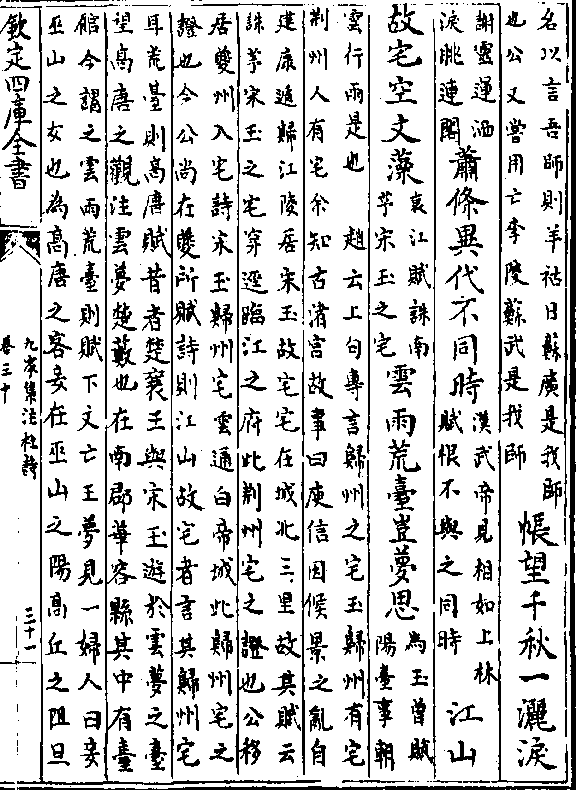 名以言吾師則羊祜曰蘇廣是我師
也公又嘗用亡李陵蘇武是我師
悵望千秋一灑淚
謝靈運洒
淚眺連閣
蕭條異代不同時
漢武帝見相如上林
賦恨不與之同時
江山
故宅空文藻
哀江賦誅南
茅宋玉之宅
雲雨荒臺豈夢思
為玉曾賦
陽臺事朝
雲行雨是也　趙云上句專言歸州之宅玉歸州有宅
荆州人有宅余知古渚宫故事曰庾信因候景之亂自
建康遁歸江陵居宋玉故宅宅在城北三里故其賦云
誅茅宋玉之宅穿逕臨江之府此荆州宅之證也公移
居夔州入宅詩宋玉歸州宅雲通白帝城此歸州宅之
證也今公尚在夔所賦詩則江山故宅者言其歸州宅
耳荒臺則高唐賦昔者楚襄王與宋玉遊於雲夢之臺
望高唐之觀注雲夢楚藪也在南郡華容縣其中有臺
館今謂之雲雨荒臺則賦下文亡王夢見一婦人曰妾
巫山之女也為高唐之客妾在巫山之陽高丘之阻旦
欽定四庫全書
九家集注杜詩
卷三十
三十一